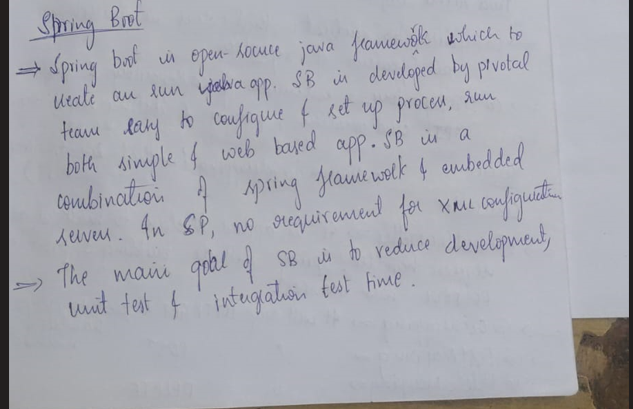 Spring Boot
⇒ Spring boot is open-source java framework which to
create an run java app. SB is developed by pivotal
team easy to configure & set up process, run
both simple & web based app. SB is a
combination of spring framework & embedded
servers. In SP, no requirement for XML configuration
⇒ The main goal of SB is to reduce development,
unit test & integration test time.